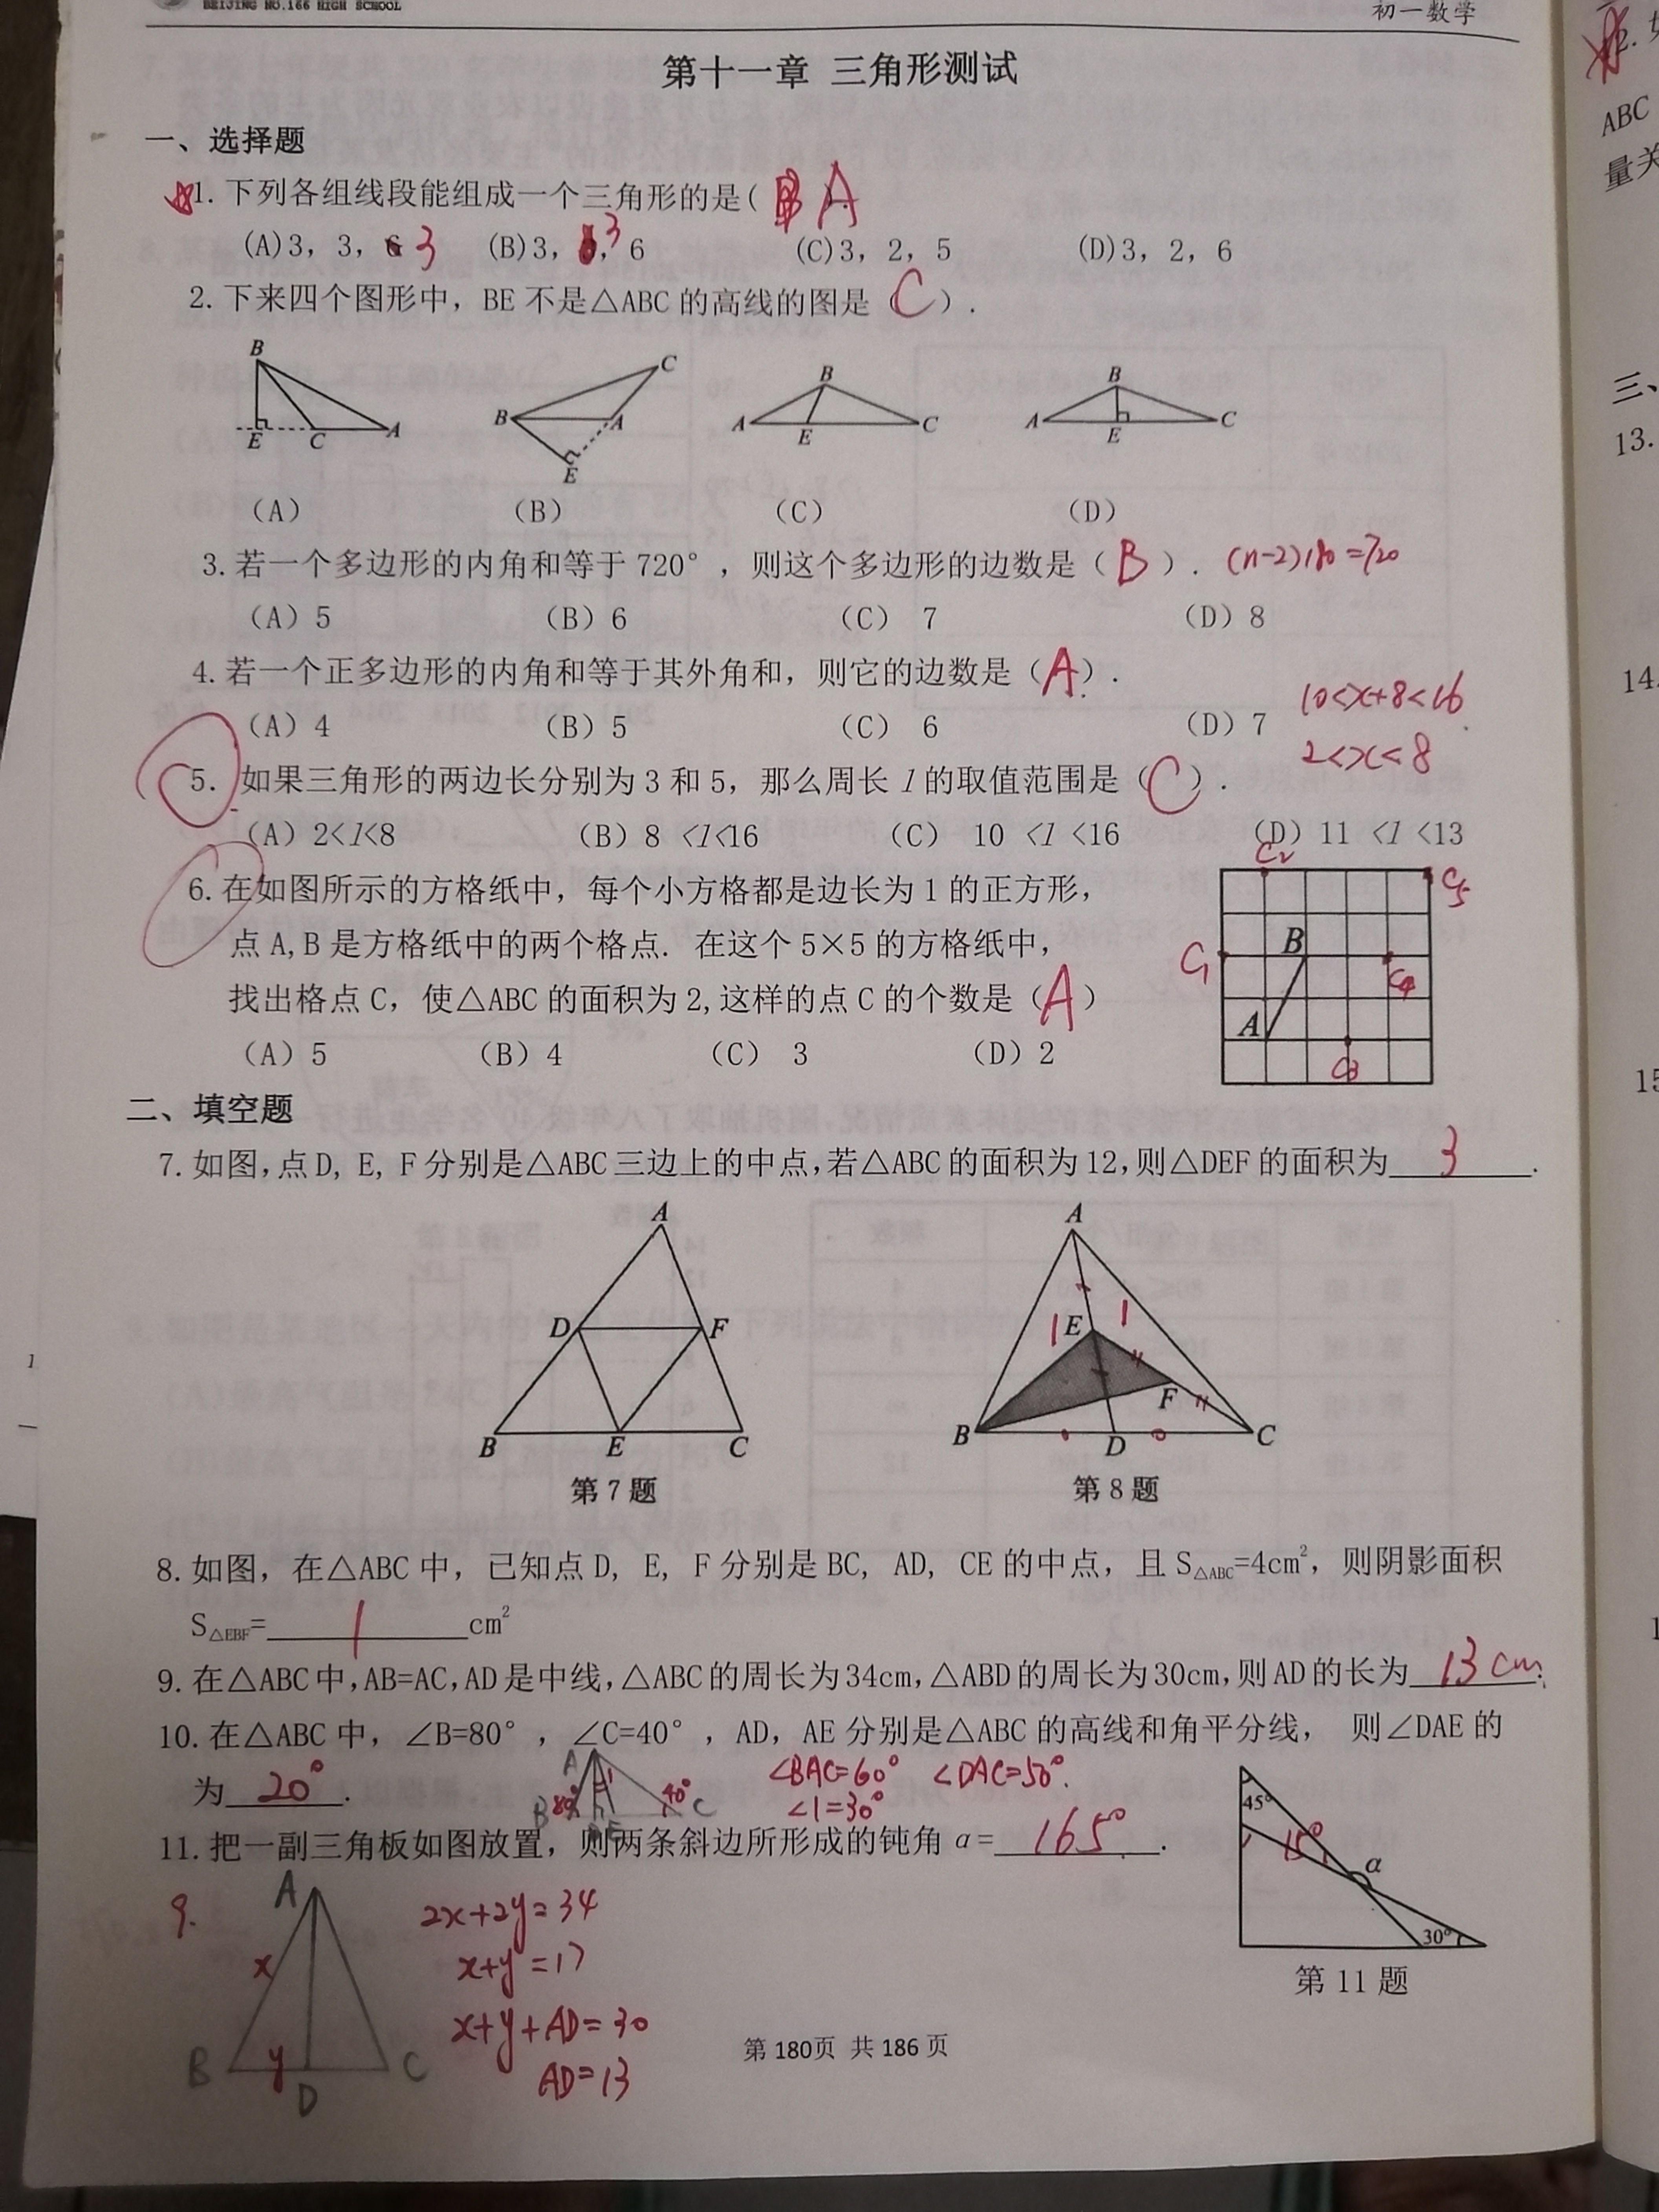 BEIJING NO.166 HIGH SCHOOL
初一数学
第十一章 三角形测试
一、选择题
1. 下列各组线段能组成一个三角形的是( B A ).
(A)3, 3, 6 3 (B)3, 3, 6 (C)3, 2, 5 (D)3, 2, 6
2. 下来四个图形中, BE 不是△ABC 的高线的图是 ( C ) .
B E C A
B C A E
A B E C
A B E C
(A) (B) (C) (D)
3. 若一个多边形的内角和等于 720° , 则这个多边形的边数是 ( B ) . (n-2)180=720
(A) 5 (B) 6 (C) 7 (D) 8
4. 若一个正多边形的内角和等于其外角和, 则它的边数是 ( A ) .
(A) 4 (B) 5 (C) 6 (D) 7
10<x+8<16
2<x<8
5. 如果三角形的两边长分别为 3 和 5, 那么周长 l 的取值范围是 ( C ) .
(A) 2<l<8 (B) 8 <l<16 (C) 10 <l <16 (D) 11 <l <13
6. 在如图所示的方格纸中, 每个小方格都是边长为 1 的正方形,
点 A, B 是方格纸中的两个格点. 在这个 5×5 的方格纸中,
找出格点 C, 使△ABC 的面积为 2, 这样的点 C 的个数是 ( A )
(A) 5 (B) 4 (C) 3 (D) 2
C2 C5
C1 B C4
A C3
二、填空题
7. 如图, 点 D, E, F 分别是△ABC 三边上的中点, 若△ABC 的面积为 12, 则△DEF 的面积为 3 .
A
D F
B E C
第 7 题
A
1 E 1
F
B D C
第 8 题
8. 如图, 在△ABC 中, 已知点 D, E, F 分别是 BC, AD, CE 的中点, 且 S△ABC=4cm², 则阴影面积
S△EBF= 1 cm²
9. 在△ABC 中, AB=AC, AD 是中线, △ABC 的周长为 34cm, △ABD 的周长为 30cm, 则 AD 的长为 13 cm.
10. 在△ABC 中, ∠B=80° , ∠C=40° , AD, AE 分别是△ABC 的高线和角平分线, 则∠DAE 的
为 20° .
A 1 B 80° 40° C
∠BAC=60° ∠DAC=50°.
∠1=30°
11. 把一副三角板如图放置, 则两条斜边所形成的钝角 α= 165° .
45°
15° α
30°
第 11 题
9.
A
x
B y D C
2x+2y=34
x+y=17
x+y+AD=30
AD=13
第 180页 共 186 页
ABC
量关
三、
13.
14.
15